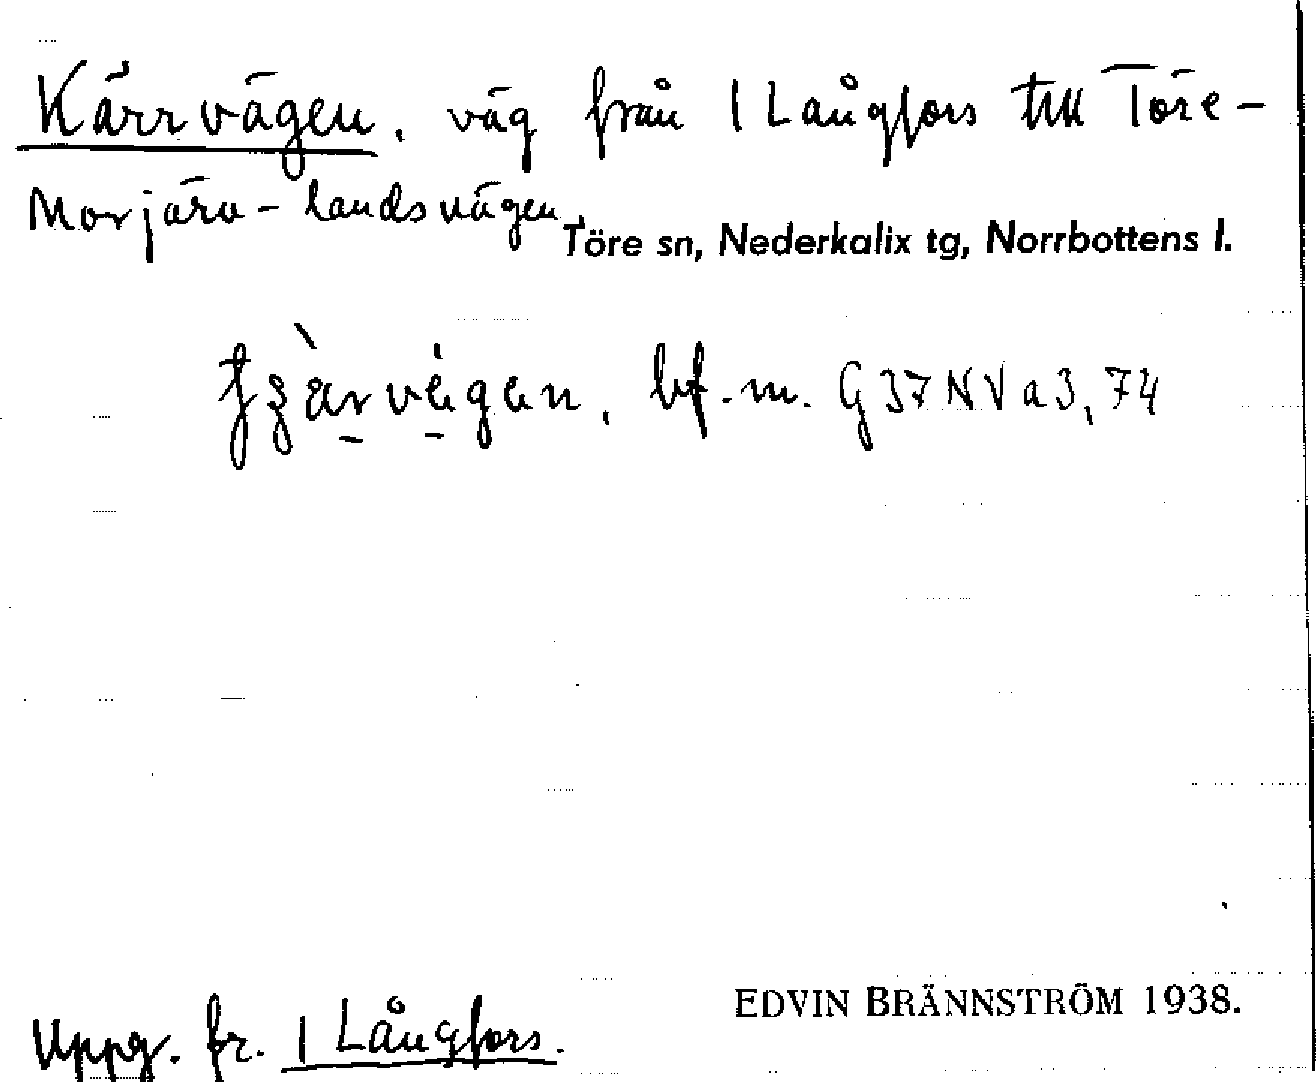 Kärrvägen, väg från 1 Långfors till Töre-
Morjärv-landsvägen.
Töre sn, Nederkalix tg, Norrbottens l.
bf. m. G 37 N V a 3, 74
Uppg. fr. 1 Långfors.
EDVIN BRÄNNSTRÖM 1938.